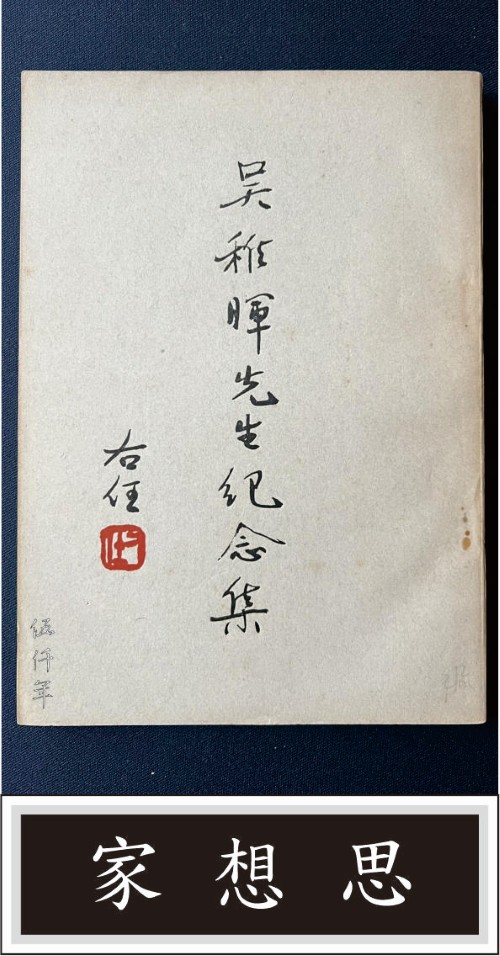 吴稚暉先生纪念集
右任
伍仟年
思想家